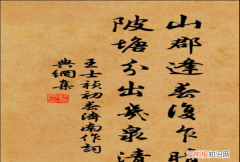 山郡逢春復乍晴
陂塘分出幾泉清
王士禎初春濟南作詞
典綱集